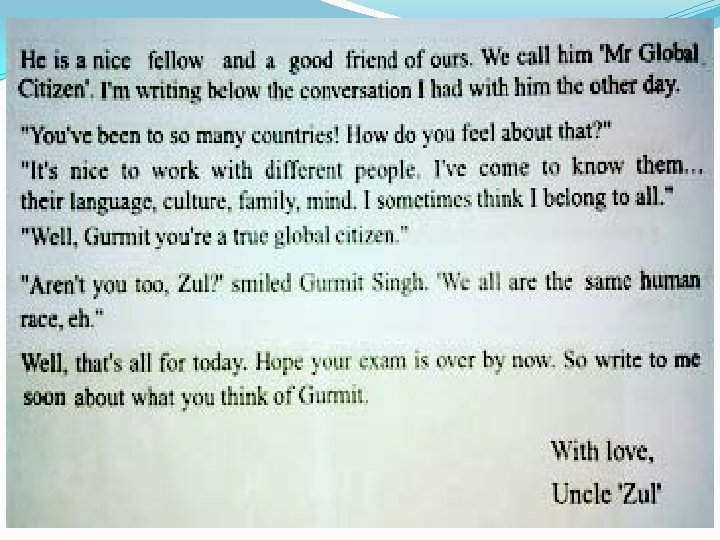 He is a nice fellow and a good friend of ours. We call him 'Mr Global
Citizen'. I'm writing below the conversation I had with him the other day.
"You've been to so many countries! How do you feel about that?"
"It's nice to work with different people. I've come to know them...
their language, culture, family, mind. I sometimes think I belong to all."
"Well, Gurmit you're a true global citizen."
"Aren't you too, Zul?' smiled Gurmit Singh. 'We all are the same human
race, eh."
Well, that's all for today. Hope your exam is over by now. So write to me
soon about what you think of Gurmit.
With love,
Uncle 'Zul'